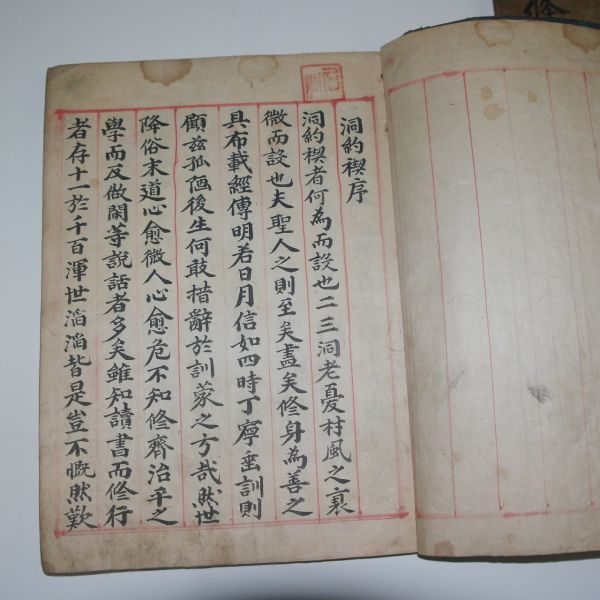 洞約禊序
洞約禊者何為而設也二三洞老憂村風之衰
微而設也夫聖人之則至矣盡矣修身為善之
具布載經傳明若日月信如四時丁寧垂訓則
顧茲孤個後生何敢措辭於訓蒙之方哉然世
降俗末道心愈微人心愈危不知修齊治平之
學而反做閑等說話者多矣雖知讀書而修行
者存十一於千百渾世滔滔皆是豈不慨然歎